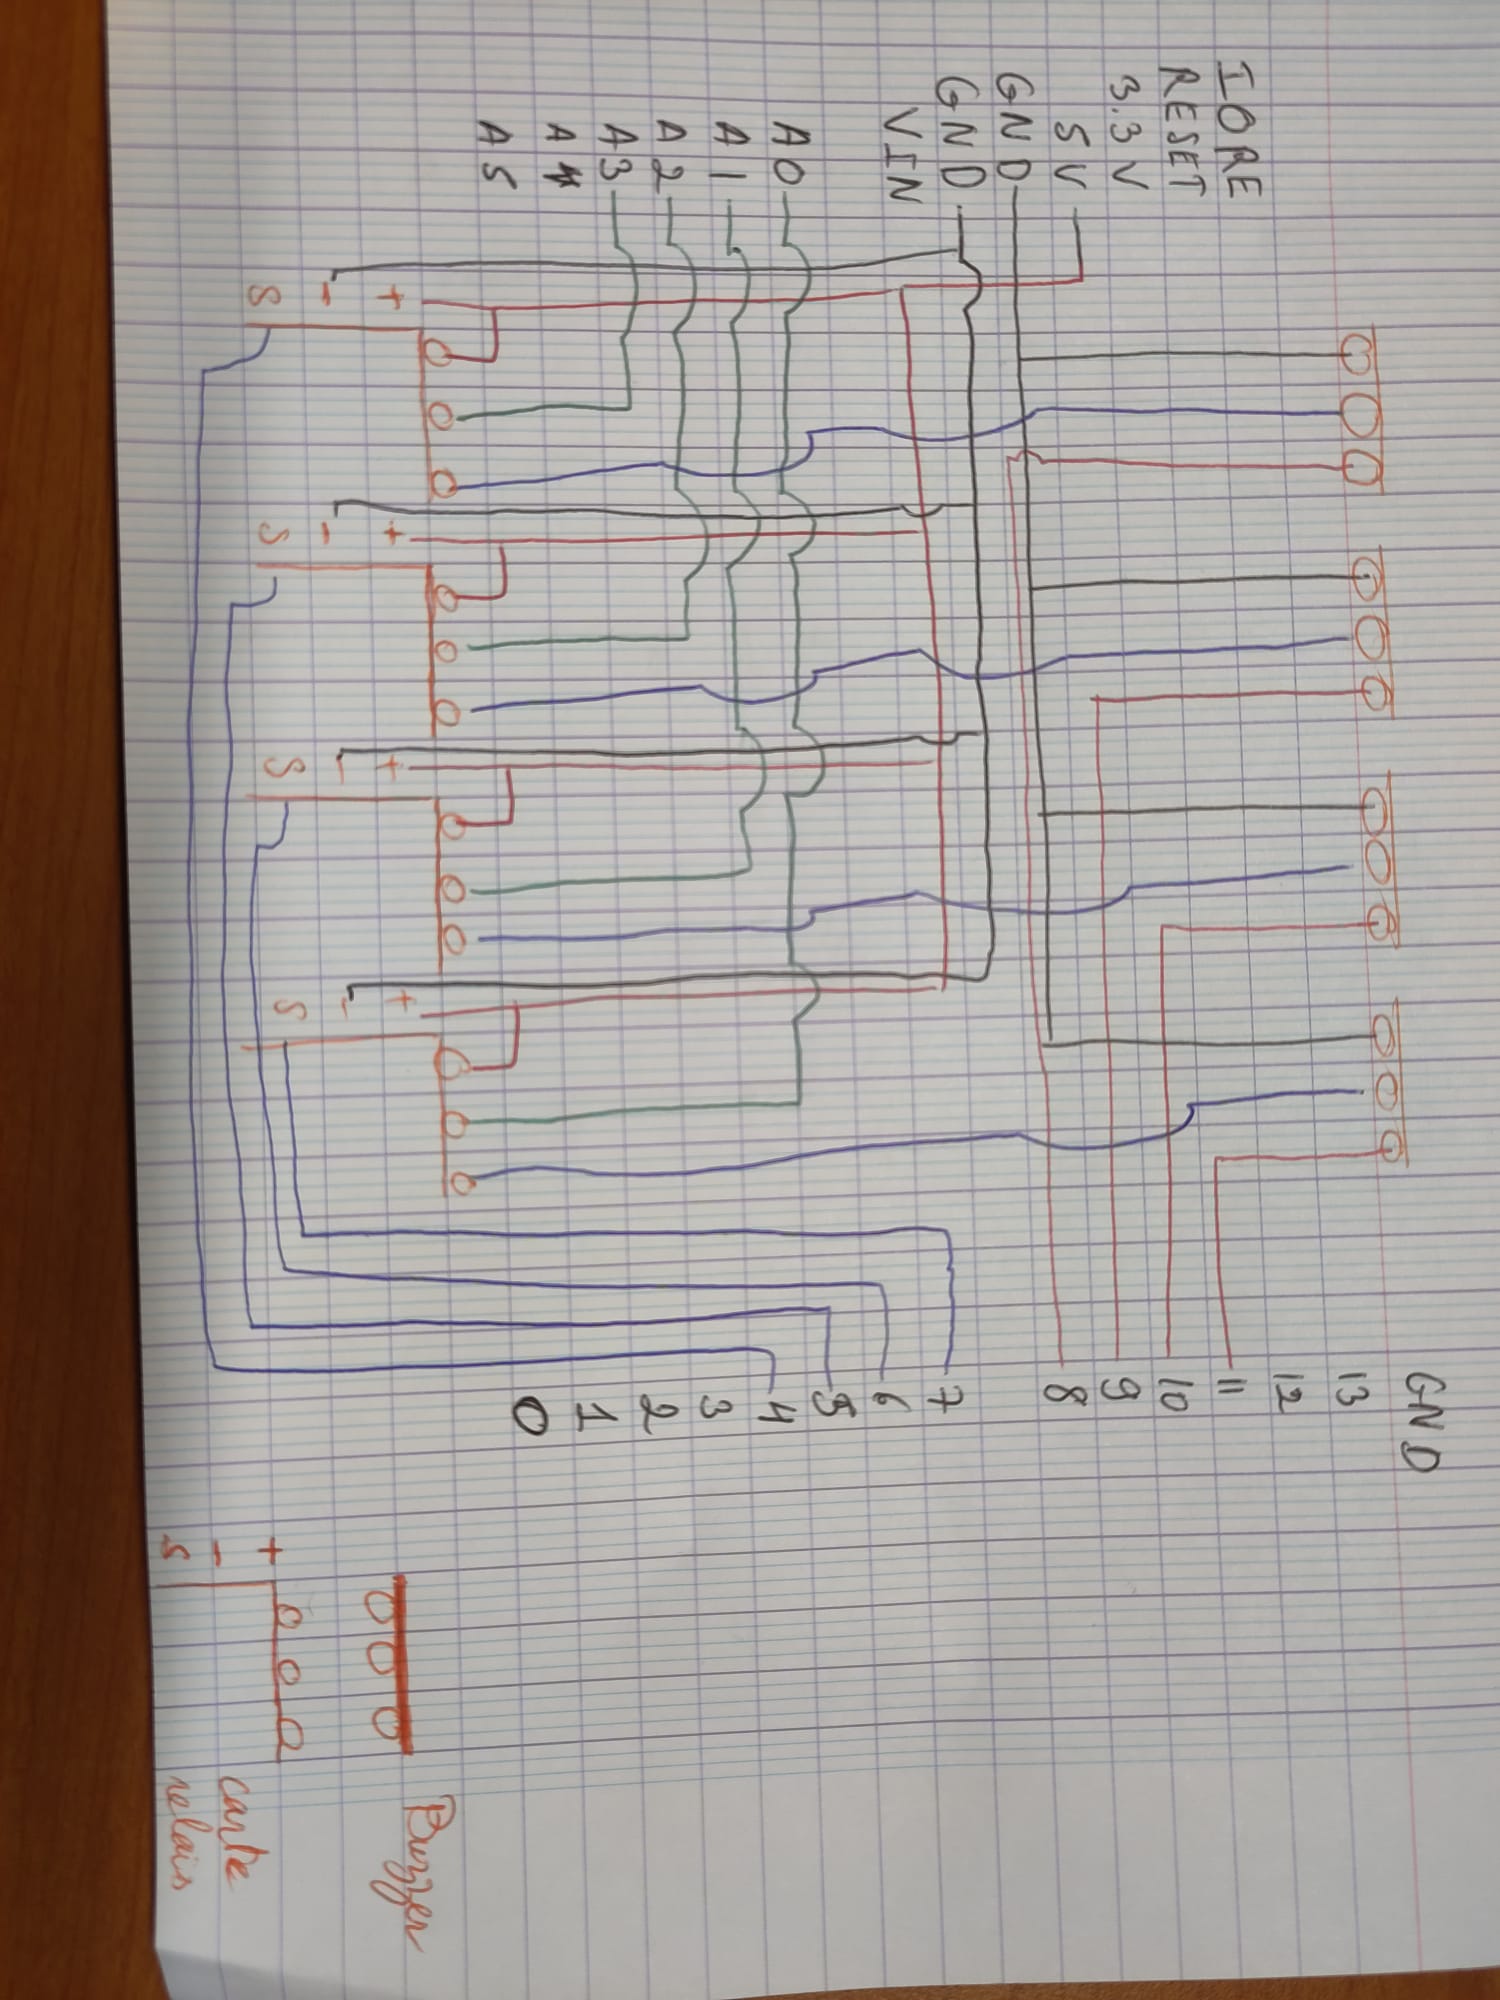 IORE
RESET
3.3V
5V
GND
GND
VIN
A0
A1
A2
A3
A4
A5
GND
13
12
11
10
9
8
7
6
5
4
3
2
1
0
S - +
S - +
S - +
S - +
Buzzer
+
-
S
carte
relais